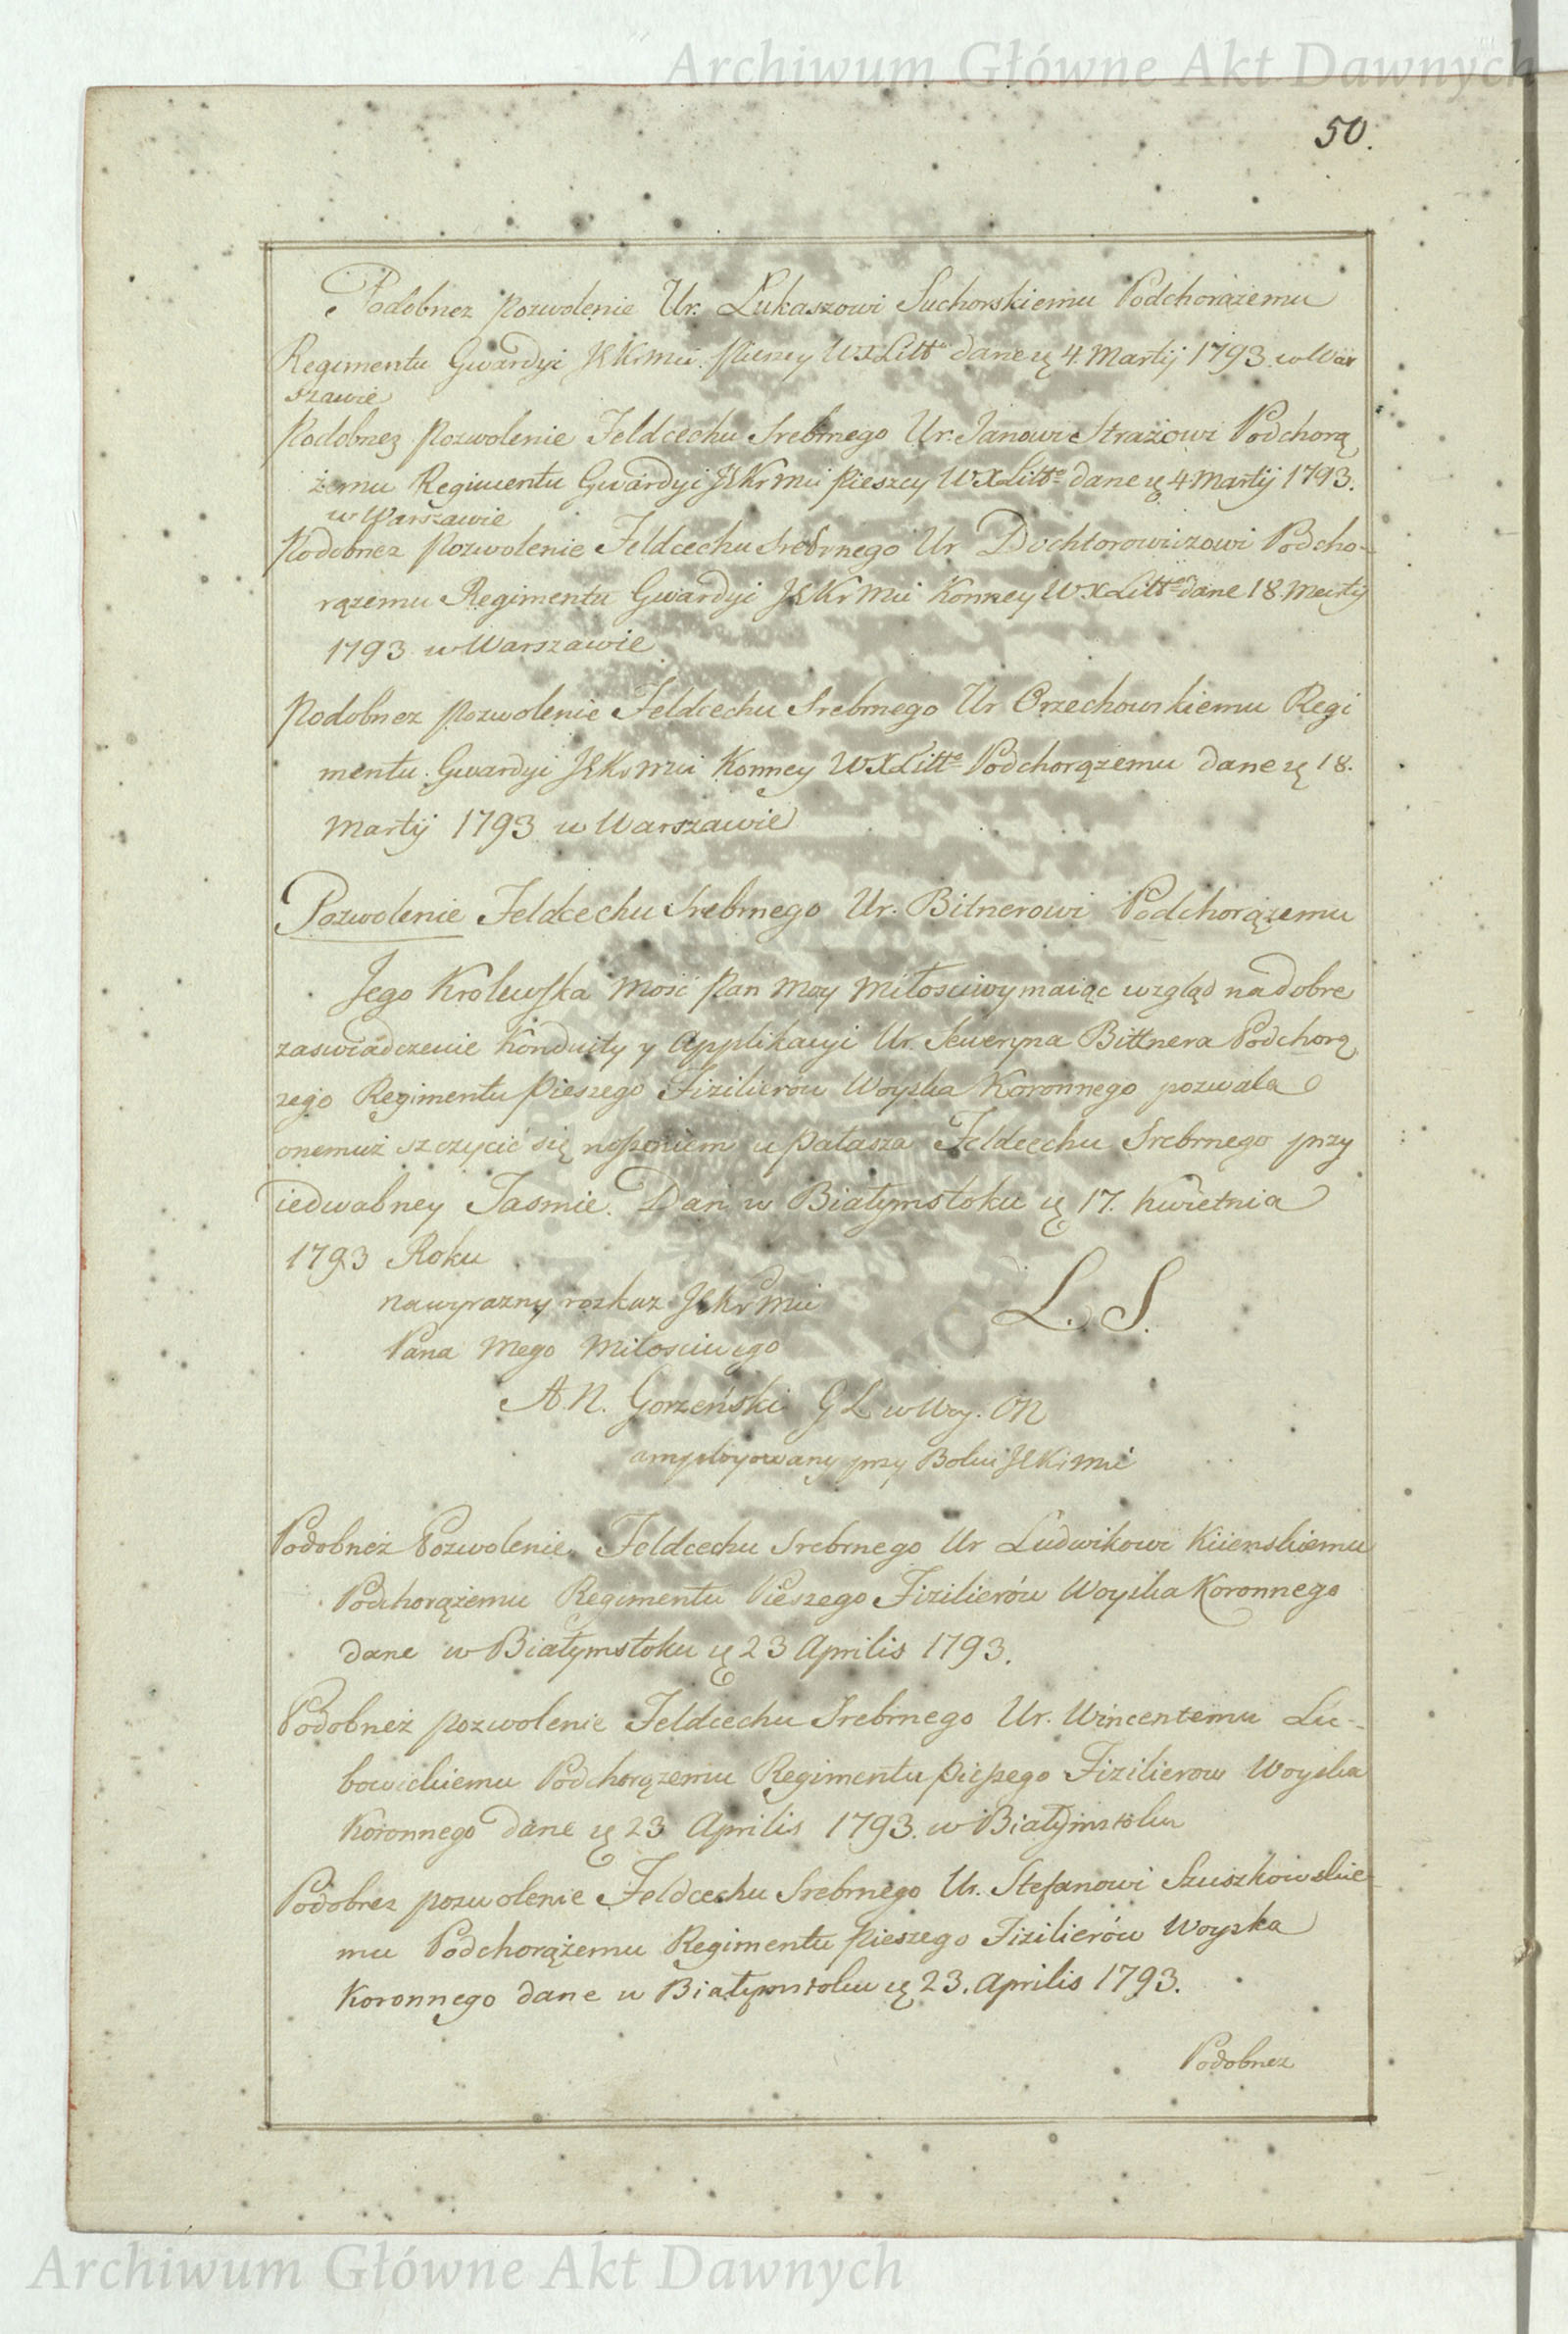 Archiwum Główne Akt Dawnych
50.
Podobnez pozwolenie Ur. Łukaszowi Suchorskiemu Podchorążemu
Regimentu Gwardyi JKKrMci. Pieszey WXLitto dane ą 4. Martij 1793. w War
szawie
Podobnez Pozwolenie Feldcechu Srebrnego Ur. Janowi Strażowi Podchorą
żemu Regimentu Gwardyi JKKrMci Pieszey WXLitto dane ą 4 Martij 1793.
w Warszawie
Podobnez Pozwolenie Feldcechu Srebrnego Ur Dochtorowiczowi Podcho-
rązemu Regimentu Gwardyi JKKrMci Konney WXLitto dane 18. Martij
1793 w Warszawie
Podobnez pozwolenie Feldcechu Srebrnego Ur Orzechowskiemu Regi
mentu. Gwardyi JKKrMci Konney WXLitto Podchorązemu dane ą 18.
Martij 1793 w Warszawie
Pozwolenie Feldcechu Srebrnego Ur. Bitnerowi Podchorązemu
Jego Krolewska Mość Pan Moy Miłosciwy maiąc wzgląd na dobre
zaswiadczenie Konduity y Applikacyi Ur. Seweryna Bittnera Podchorą
zego Regimentu Pieszego Fizilierow Woyska Koronnego pozwala
onemuż szczycić się noszeniem u Pałasza Feldcechu Srebrnego przy
iedwabney Tasmie. Dan w Białymstoku ą 17. Kwietnia
1793 Roku
na wyrazny rozkaz JKKrMci
L. S.
Pana Mego Miłosciwego
A. N. Gorzeński G L w Woy. ON
amployowany przy Boku JKKrMci
Podobnież Pozwolenie Feldcechu Srebrnego Ur Ludwikowi Kiienskiemu
Podchorążemu Regimentu Pieszego Fizilierów Woyska Koronnego
dane w Białymstoku ą 23 Aprilis 1793.
Podobnież pozwolenie Feldcechu Srebrnego Ur. Wincentemu Lu-
bowickiemu Podchorązemu Regimentu Pieszego Fizilierow Woyska
Koronnego dane ą 23 Aprilis 1793. w Białymstoku
Podobnez pozwolenie Feldcechu Srebrnego Ur. Stefanowi Szuszkowskie-
mu Podchorążemu Regimentu Pieszego Fizilierów Woyska
Koronnego dane w Białymstoku ą 23. Aprilis 1793.
Podobnez
Archiwum Główne Akt Dawnych